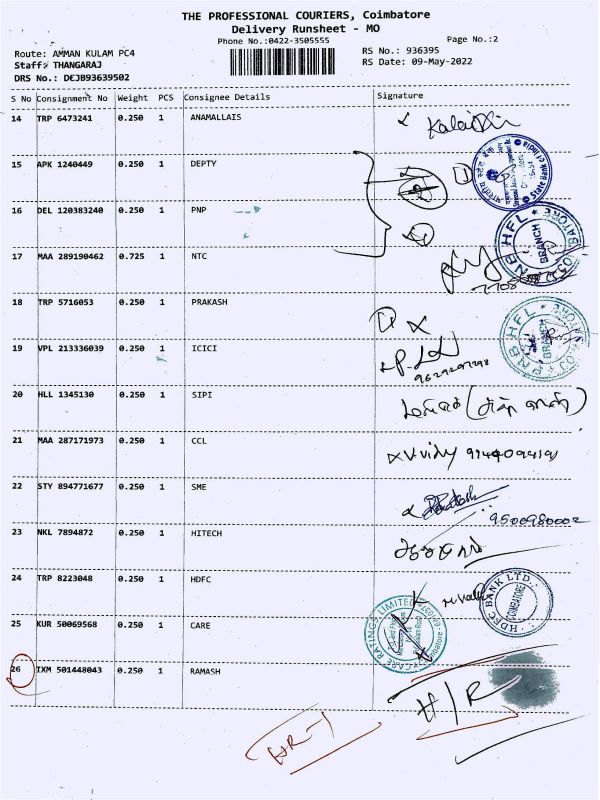 THE PROFESSIONAL COURIERS, Coimbatore
Delivery Runsheet - MO
Phone No.:0422-3505555
Page No.:2
Route: AMMAN KULAM PC4
RS No.: 936395
Staff: THANGARAJ
RS Date: 09-May-2022
DRS No.: DEJB93639502
S No Consignment No Weight PCS Consignee Details Signature
14 TRP 6473241 0.250 1 ANAMALLAIS
15 APK 1240449 0.250 1 DEPTY
State Bank of India
16 DEL 120383240 0.250 1 PNP
PNB HFL * COIMBATORE
BRANCH
17 MAA 289190462 0.725 1 NTC
18 TRP 5716053 0.250 1 PRAKASH
PNB HFL * COIMBATORE
BRANCH
19 VPL 213336039 0.250 1 ICICI
20 HLL 1345130 0.250 1 SIPI
21 MAA 287171973 0.250 1 CCL
22 STY 894771677 0.250 1 SME
9500980002
23 NKL 7894872 0.250 1 HITECH
24 TRP 8223048 0.250 1 HDFC
HDFC BANK LTD.
COIMBATORE
25 KUR 50069568 0.250 1 CARE
CARE RATINGS LIMITED
26 IXM 501448043 0.250 1 RAMASH
H/R
HR-1